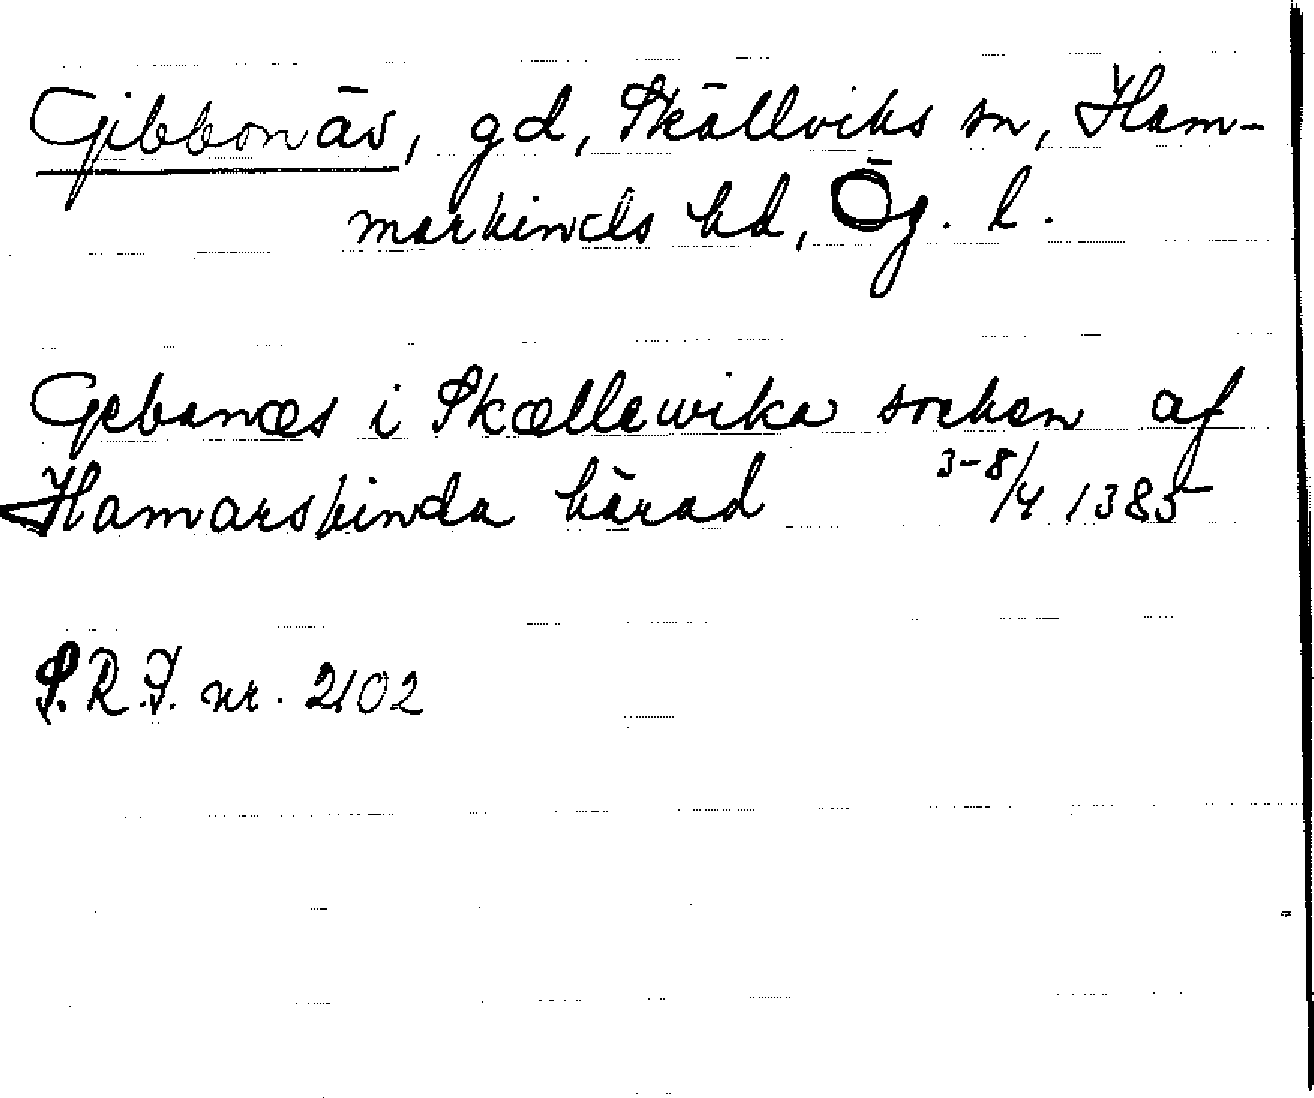 Gibbonäs, gd, Skällviks sn, Ham-
markinds hd, Ög. l.
Gebanæs i Skællawika sokn af
Hamarskinda härad 3-8/4 1385
S.R.P. nr. 2102